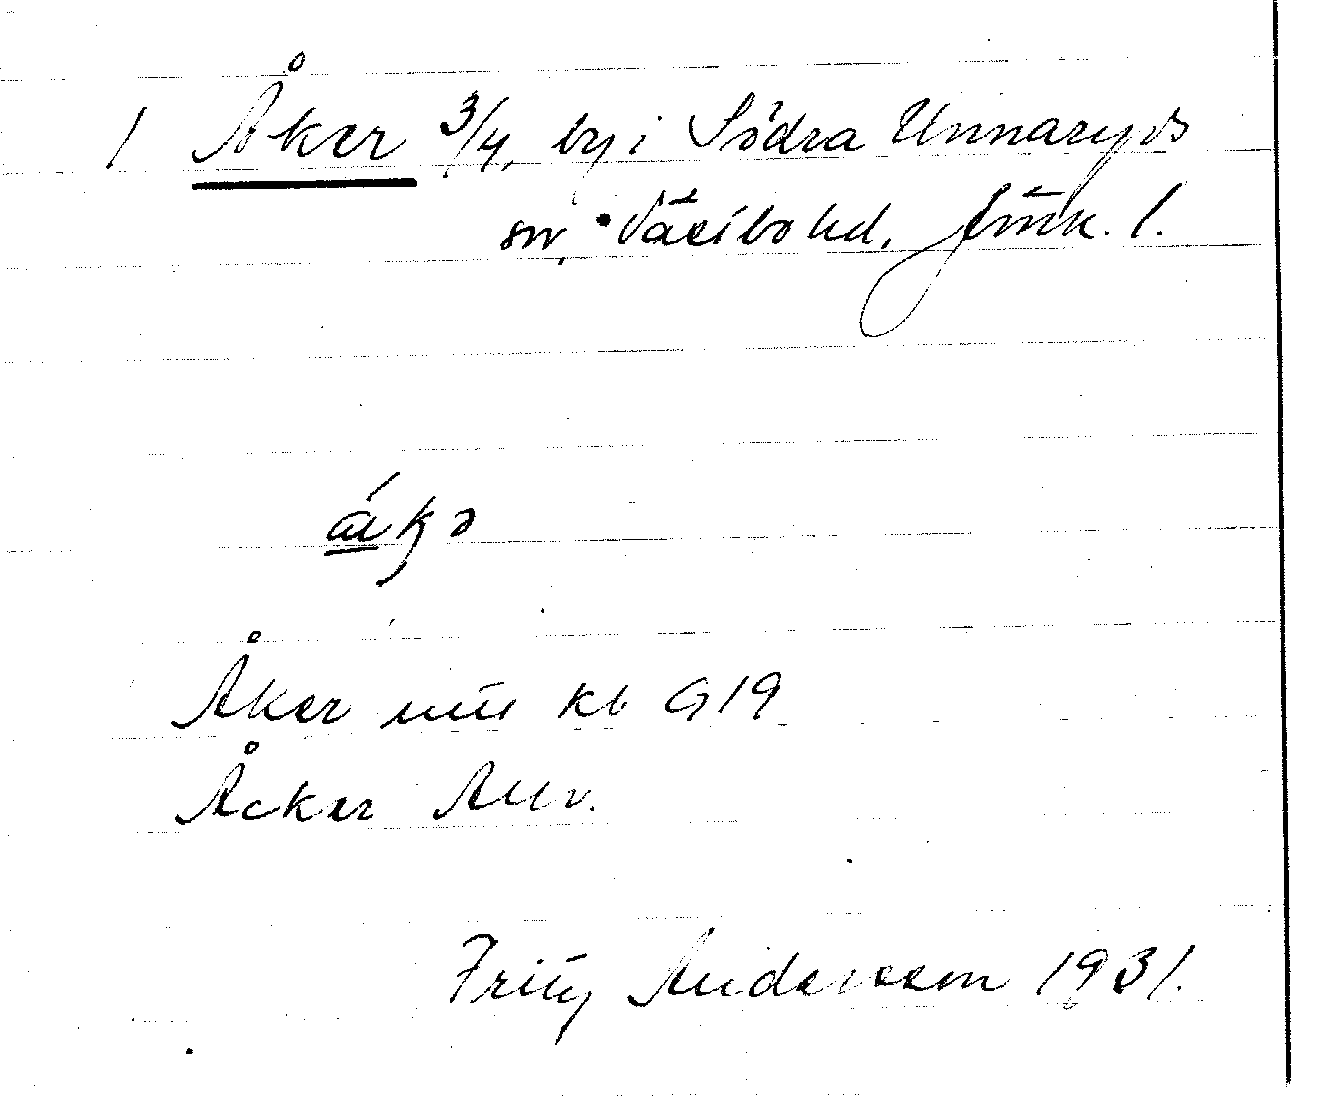 1 Åker 3/4, by i Södra Unnaryds
sn, Västbo hd, Jönk. l.
Åker kb G 19
Åcker
Fritz Andersson 1931.